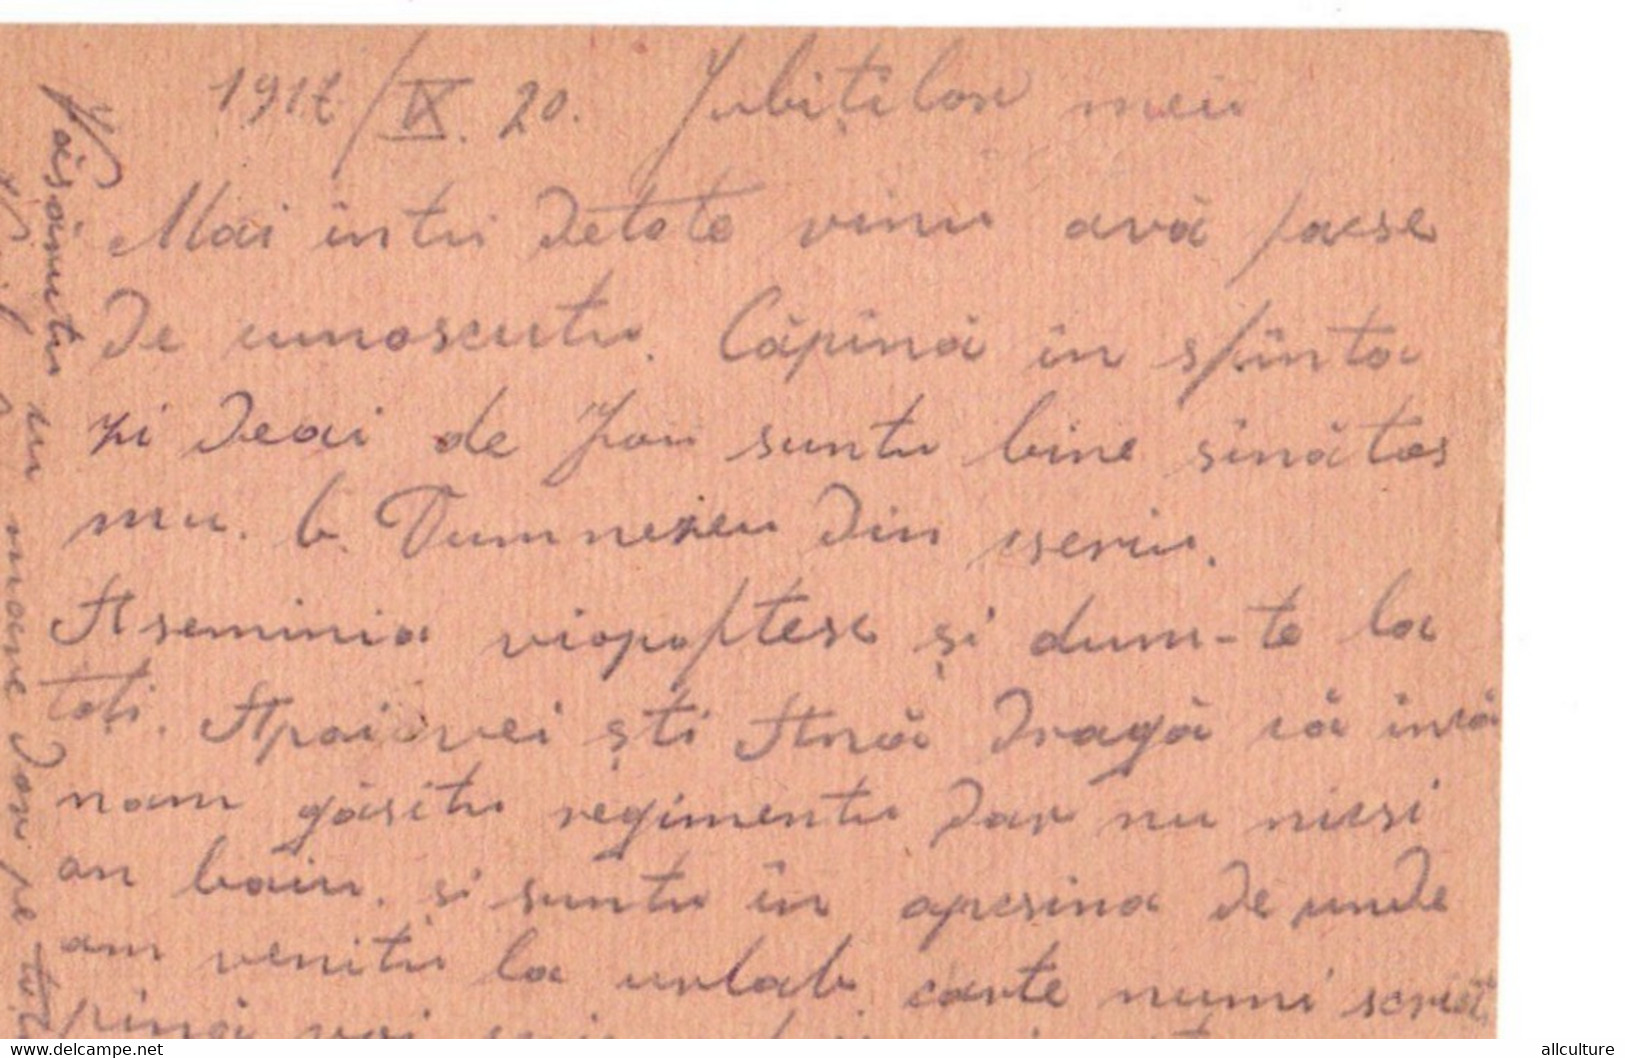 1917/IX. 20. Jubiţilor mei
Mai întîi detote vinu avă facse
de cunoscutu. Căpînă în sfînta
zi deai de Jou suntu bine sînătos
mu. b. Dumnezeu din cseriu.
Aseminia viopoftesc şi dum-te la
toţi. Apoi vei şti Ană dragă că încă
nam găsitu regimentu dar nu nicsi
an baiu. si suntu în apesina de unde
am venitu la urlab. carte numi scrieţi
pînă voi
Văsănutu cu mare dor pe
www.delcampe.net
allculture